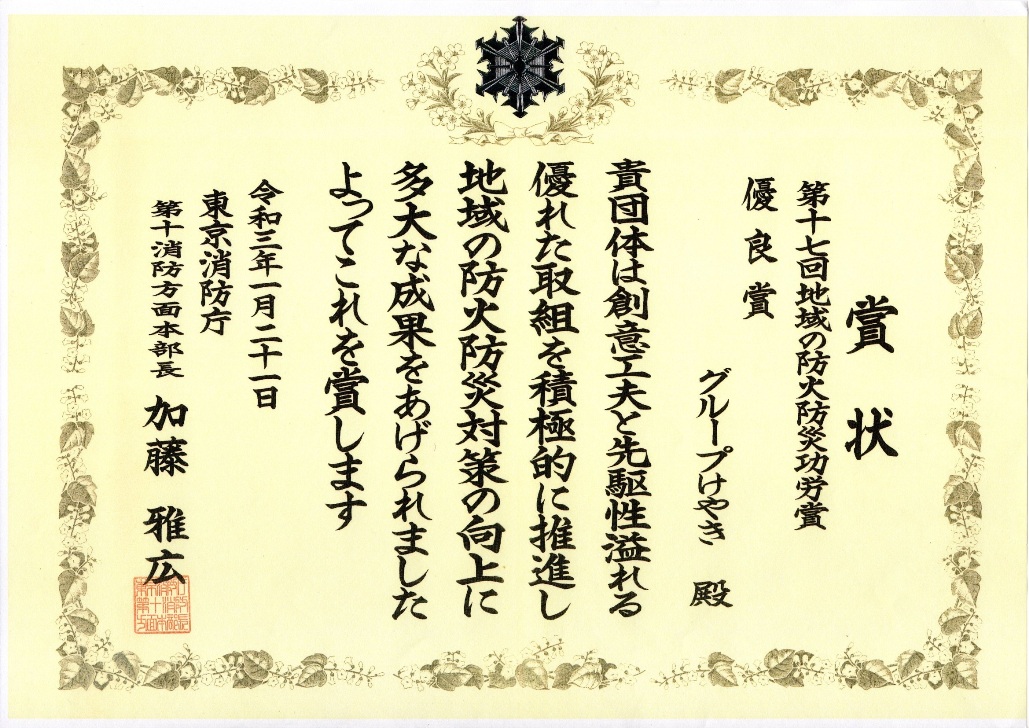 賞状
第十七回地域の防火防災功労賞
優良賞
グループけやき 殿
貴団体は創意工夫と先駆性溢れる
優れた取組を積極的に推進し
地域の防火防災対策の向上に
多大な成果をあげられました
よってこれを賞します
令和三年一月二十一日
東京消防庁
第十消防方面本部長 加藤雅広